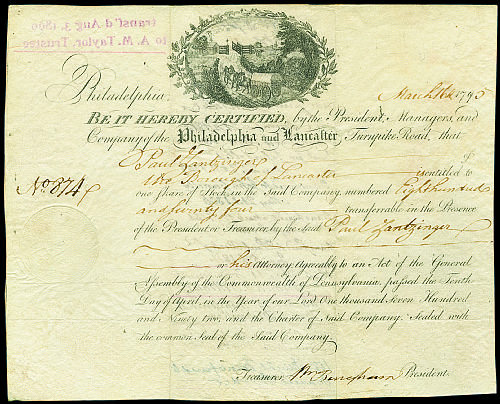 transf'd Aug. 3, 1860
to A. M. Taylor, Trustee
Philadelphia, March 1795
BE IT HEREBY CERTIFIED, by the President, Managers, and
Company of the Philadelphia and Lancaster Turnpike Road, that
Paul Zantzinger of
the Borough of Lancaster is entitled to
No 874
one share of Stock in the said Company, numbered Eight hundred
and seventy four transferrable in the Presence
of the President or Treasurer by the said Paul Zantzinger
or his Attorney: Agreebly to an Act of the General
Assembly of the Commonwealth of Pennsylvania, passed the Tenth
Day of April, in the Year of our Lord One thousand Seven Hundred
and Ninety two; and the Charter of said Company. Sealed with
the common Seal of the Said Company.
Treasurer, Wm Bingham President.